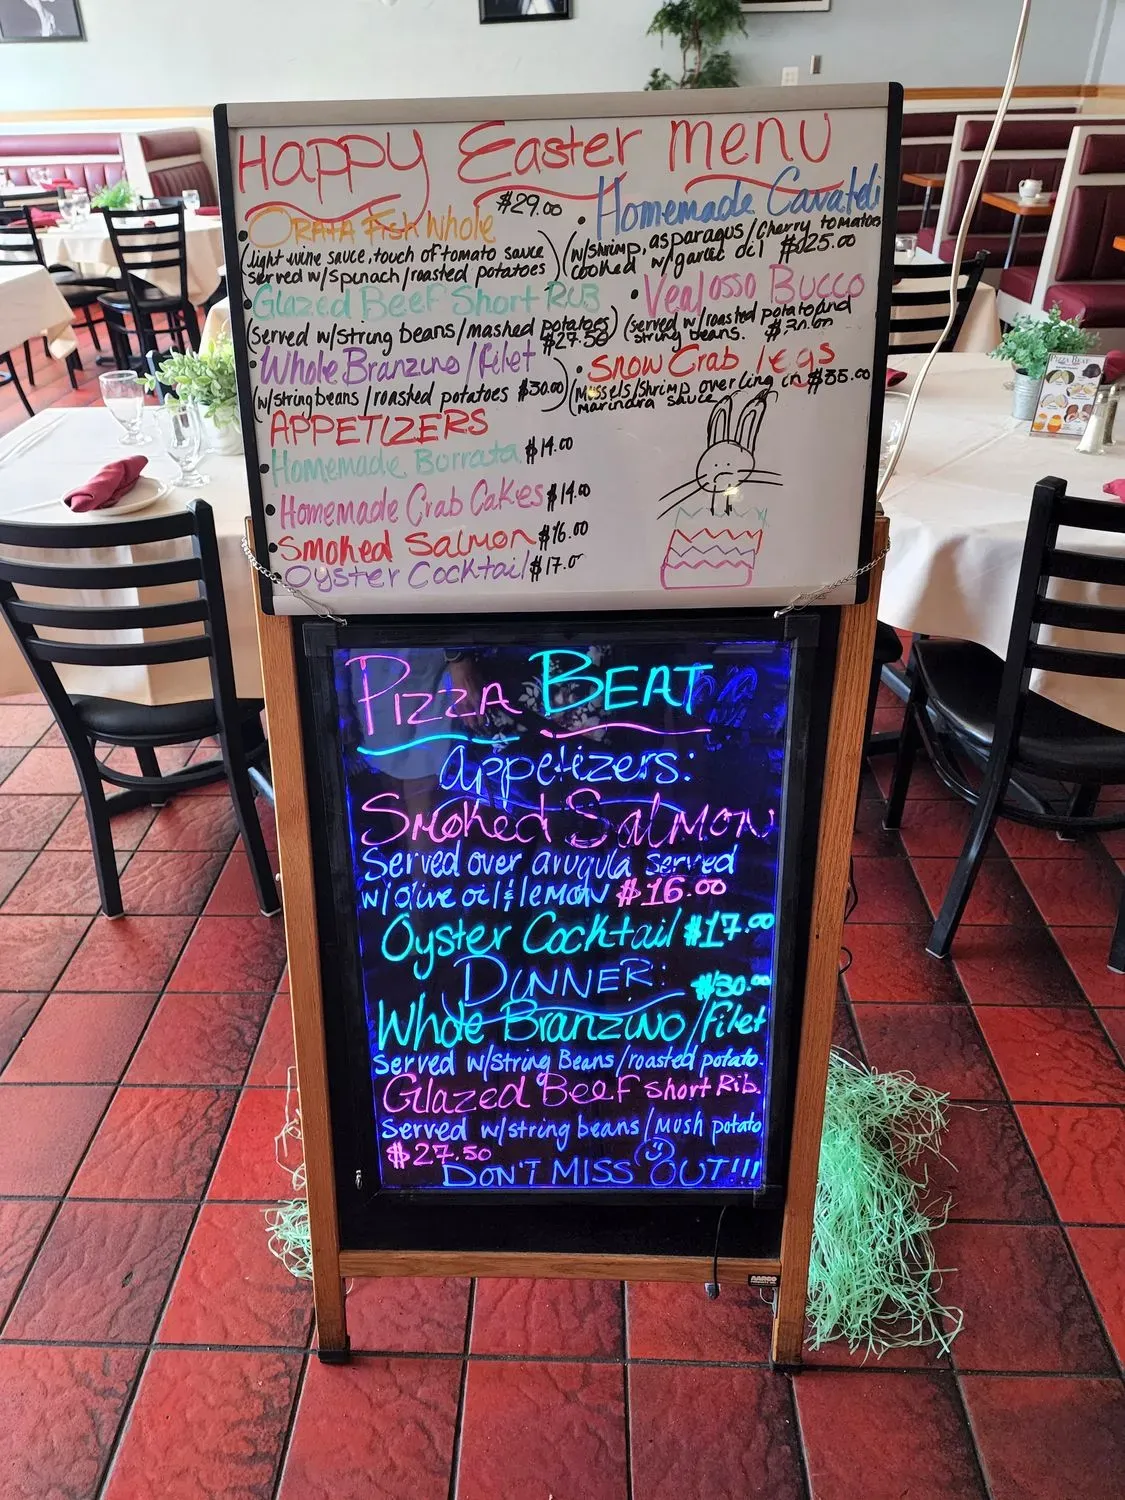 Happy Easter menu
• ORATA Fish Whole $29.00
(light wine sauce, touch of tomato sauce
served w/spinach/roasted potatoes)
• Glazed Beef Short RUB
(served w/string beans/mashed potatoes)
$27.50
• Whole Branzino/filet
(w/stringbeans/roasted potatoes $30.00)
• Homemade Cavateli
(w/shrimp, asparagus/cherry tomatoes
cooked w/garlic oil $25.00
• Veal osso Bucco
(served w/roasted potato and
string beans.
• Snow Crab legs
(mussels/shrimp over ling in $35.00
marindra sauce
APPETIZERS
• Homemade Burrata $14.00
• Homemade Crab Cakes $14.00
• Smoked Salmon $16.00
Oyster Cocktail $17.0
STAPLES
PIZZA BEAT
appetizers:
Smoked Salmon
Served over arugula served
w/olive oil & lemon $16.00
Oyster Cocktail $17.00
DINNER:
$30.00
Whole Branzino/filet
Served w/String Beans/roasted potato.
Glazed Beef Short Rib.
Served w/string beans/Mush potato
$27.50
DON'T MISS OUT!!!
AARCO
PIZZA BEAT